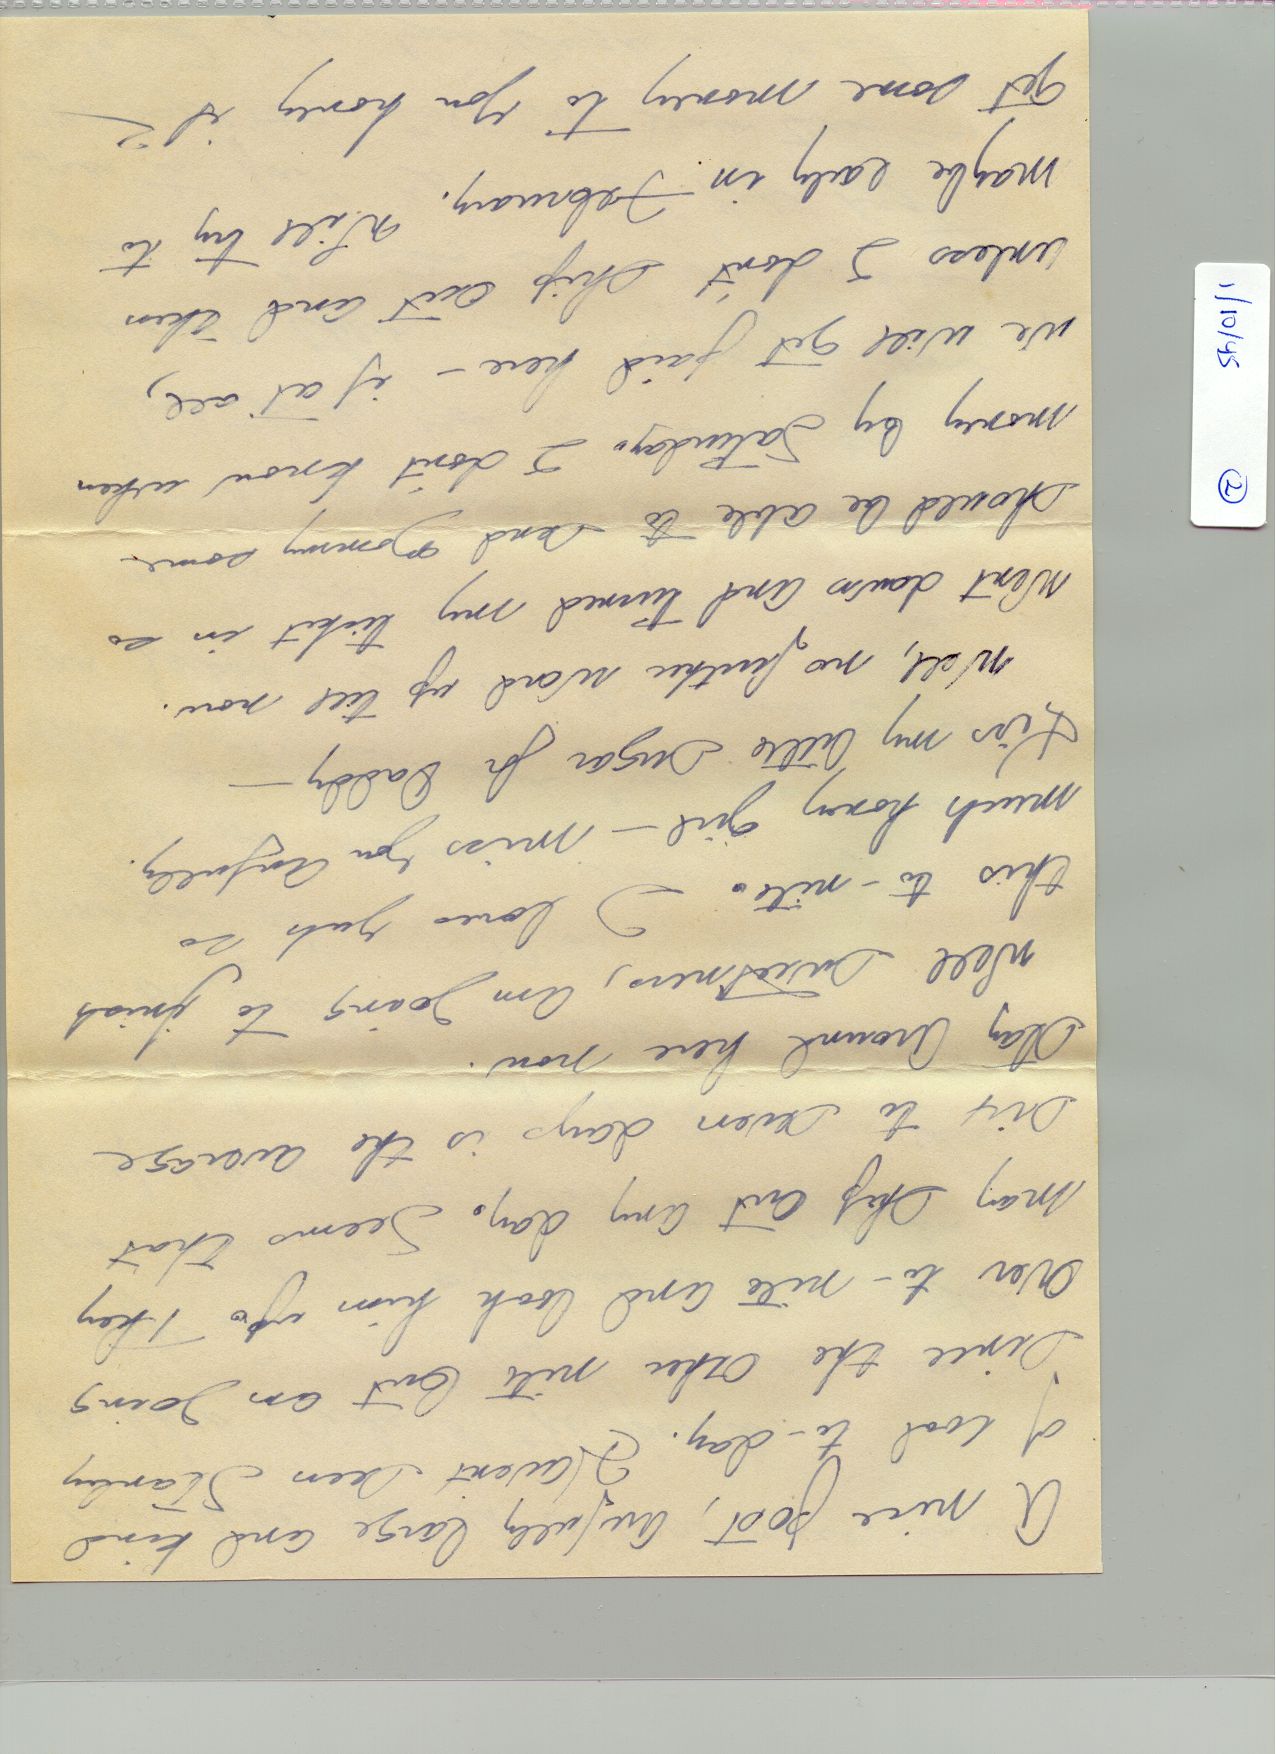 A nice post, awfully large and kind
of cool to-day. Haven't seen Stanley
since the other nite but am going
over to-nite and look him up. They
may ship out any day. Seems that
six to seven days is the average
stay around here now.
Well sweetness, am going to finish
this to-nite. I loves yuh so
much honey girl - miss you awfully.
Kiss my little sugar for Daddy -
Well, no further word up till now.
Went down and turned my ticket in so
should be able to send Mommy some
money by Saturday. I don't know when
we will get paid here - if at all,
unless I don't ship out and then
maybe early in February. Will try to
get some money to you honey if
1/10/45 2